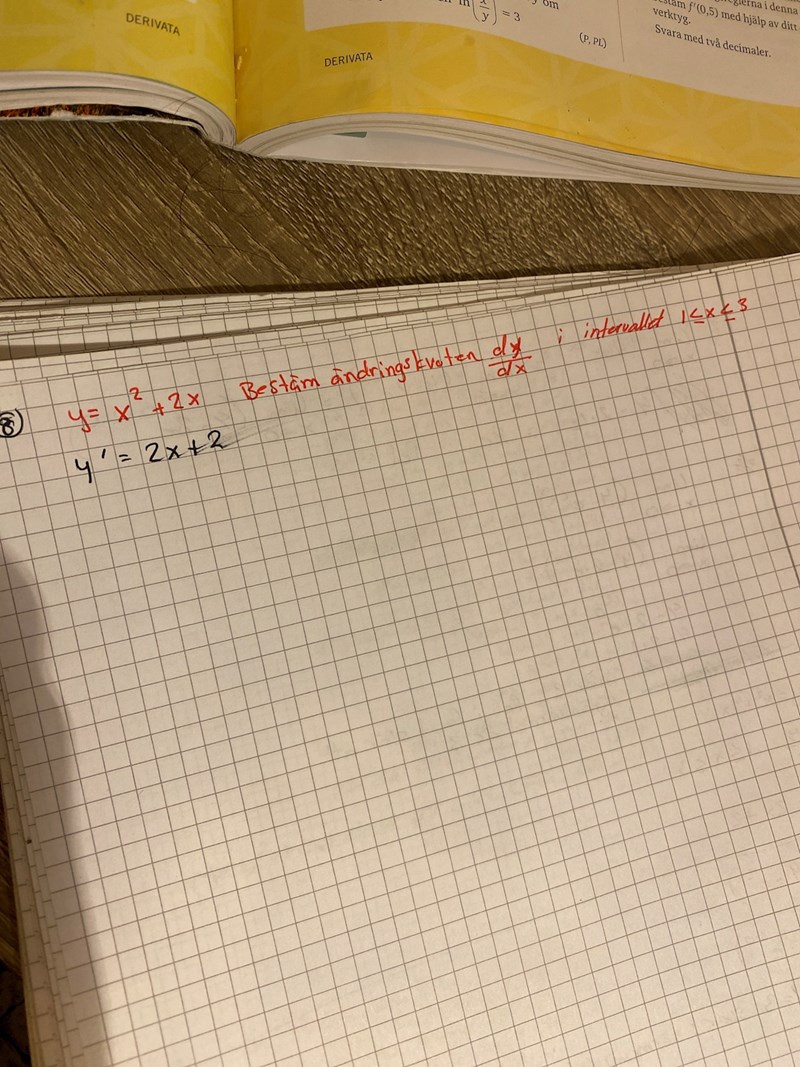 DERIVATA
ln(x/y) = 3
y om
(P, PL)
DERIVATA
i denna
f'(0,5) med hjälp av ditt
verktyg.
Svara med två decimaler.
8) y = x² + 2x Bestäm ändringskvoten dy/dx i intervallet 1 ≤ x ≤ 3
y' = 2x + 2